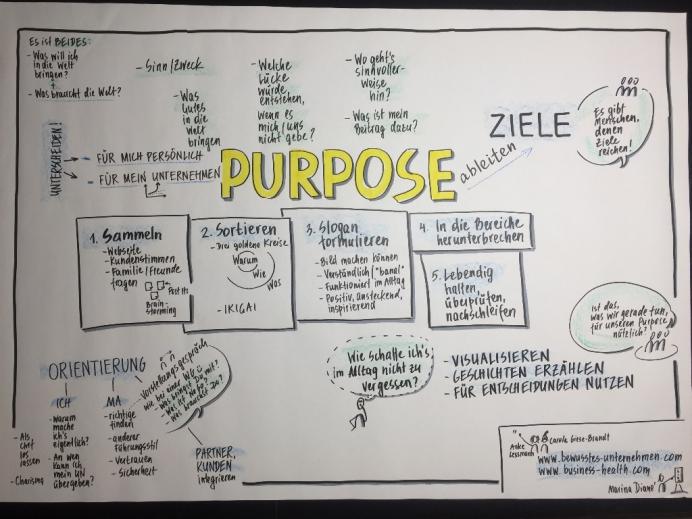 Es ist BEIDES:
- Was will ich
in die Welt
bringen?
+
- Was braucht die Welt?
- Sinn/Zweck
- Was
Gutes
in die
Welt
bringen
- Welche
Lücke
würde
entstehen,
wenn es
mich/uns
nicht gäbe?
- Wo geht's
sinnvoller-
Weise
hin?
- Was ist mein
Beitrag dazu?
ZIELE
Es gibt
Menschen,
denen
Ziele
reichen!
UNTERSCHEIDEN!
- FÜR MICH PERSÖNLICH
- FÜR MEIN UNTERNEHMEN
PURPOSE
ableiten
1. Sammeln
- Webseite
- Kundenstimmen
- Familie/Freunde
fragen
Post its
Brain-
storming
2. Sortieren
- Drei goldene Kreise
Warum
Wie
Was
- IKIGAI
3. Slogan
formulieren
- Bild machen können
- Verständlich/"banal"
- Funktioniert im Alltag
- Positiv, ansteckend,
inspirierend
4. In die Bereiche
herunterbrechen
5. Lebendig
halten,
überprüfen,
nachschleifen
Ist das,
was wir gerade tun,
für unseren Purpose
nützlich?
ORIENTIERUNG
ICH
- Warum
mache
ich's
eigentlich?
- An wen
kann ich
mein UN
übergeben?
- Als
Chef
los
lassen
- Charisma
MA
- richtige
finden
- anderer
Führungsstil
- Vertrauen
- Sicherheit
Vorstellungsgespräch
wie bei einer WG
- Was bringst Du mit?
- Was brauchst Du?
PARTNER,
KUNDEN
integrieren
Wie schaffe ich's,
im Alltag nicht zu
vergessen?
- VISUALISIEREN
- GESCHICHTEN ERZÄHLEN
- FÜR ENTSCHEIDUNGEN NUTZEN
Anke
Lessmann
Carola Giese-Brandt
www.bewusstes-unternehmen.com
www.business-health.com
Marina Diané